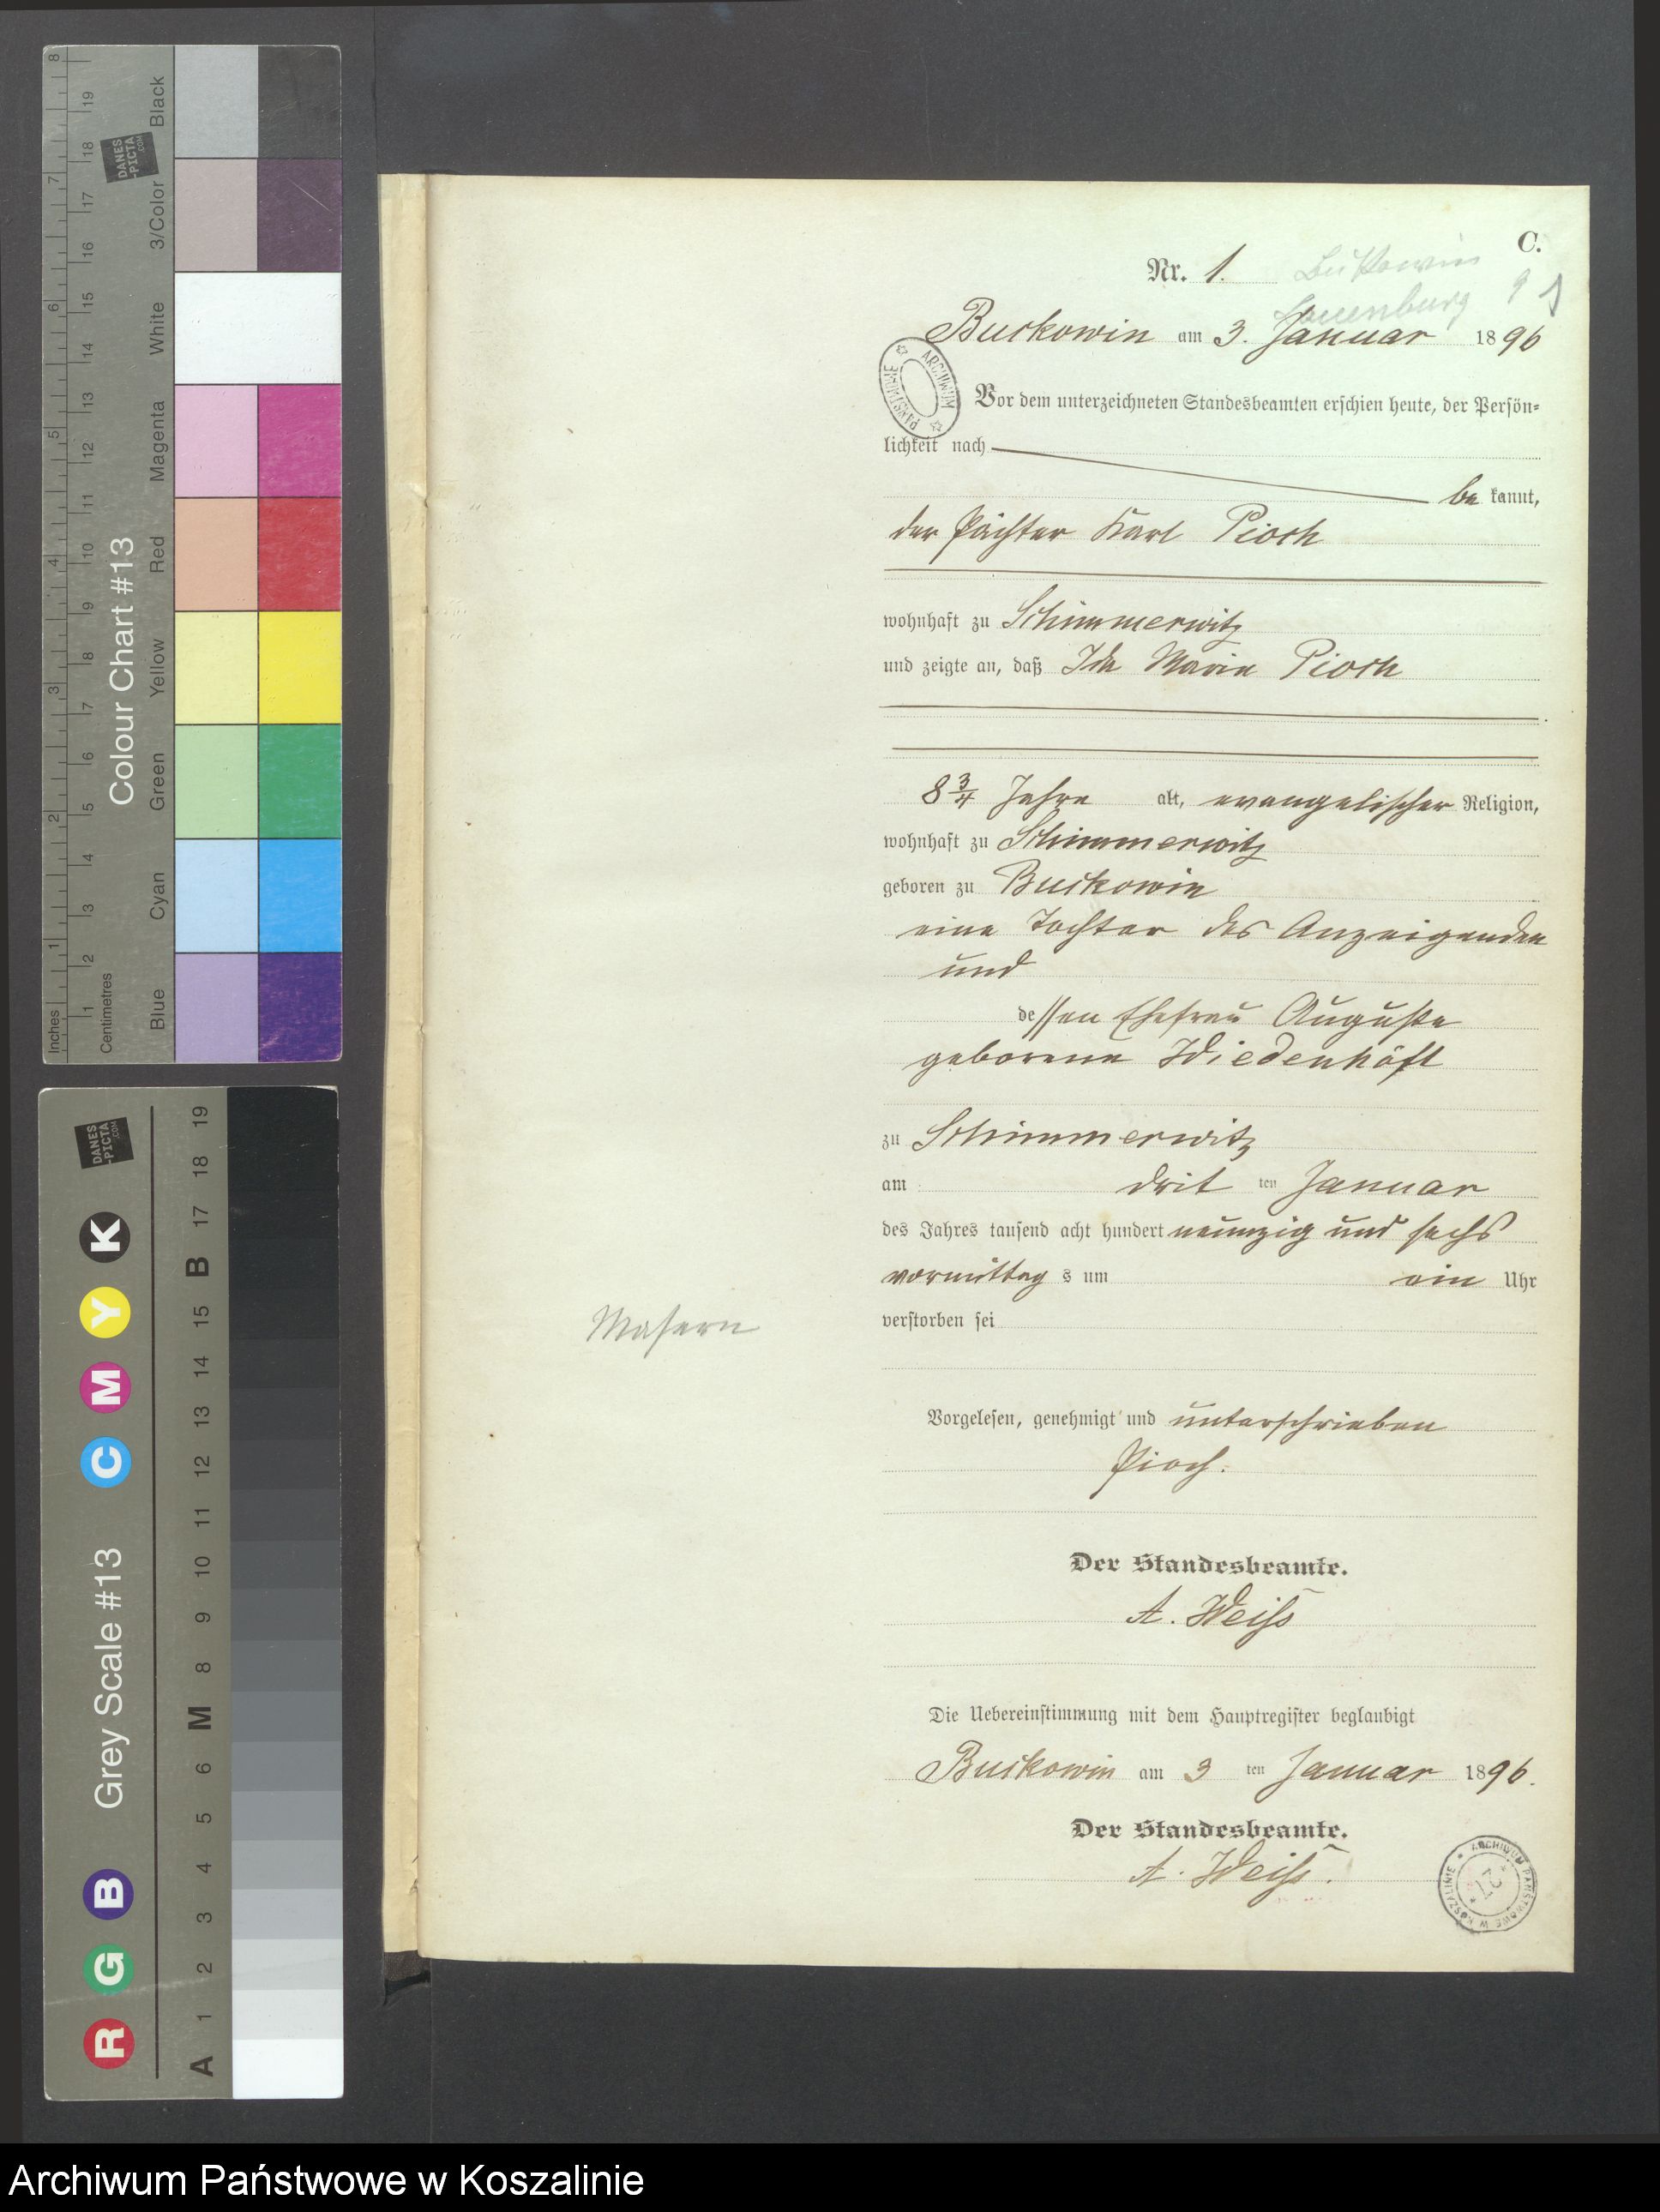 C.
Nr. 1.
Buckowin
Lauenburg
Buckowin am 3. Januar 1896
Vor dem unterzeichneten Standesbeamten erschien heute, der Persön-
lichkeit nach
be kannt,
der Pächter Karl Pioch
wohnhaft zu Schimmerwitz
und zeigte an, daß Ida Maria Pioch
8 3/4 Jahre alt, evangelischer Religion,
wohnhaft zu Schimmerwitz
geboren zu Buckowin
eine Tochter des Anzeigenden
und
dessen Ehefrau Auguste
geborene Wiedenhöft
zu Schimmerwitz
am drit ten Januar
des Jahres tausend acht hundert neunzig und sechs
vormittag s um ein Uhr
verstorben sei
Masern
Vorgelesen, genehmigt und unterschrieben
Pioch.
Der Standesbeamte.
A. Weiß
Die Uebereinstimmung mit dem Hauptregister beglaubigt
Buckowin am 3 ten Januar 1896.
Der Standesbeamte.
A. Weiß.
ARCHIWUM PAŃSTWOWE
ARCHIWUM PAŃSTWOWE W KOSZALINIE
27
Colour Chart #13
Inches 1 2 3 4 5 6 7 8
Centimetres 1 2 3 4 5 6 7 8 9 10 11 12 13 14 15 16 17 18 19
Blue Cyan Green Yellow Red Magenta White 3/Color Black
DANES
-PICTA
.COM
Grey Scale #13
R G B C M Y K
A 1 2 3 4 5 6 M 8 9 10 11 12 13 14 15 B 17 18 19
DANES
-PICTA
.COM
Archiwum Państwowe w Koszalinie